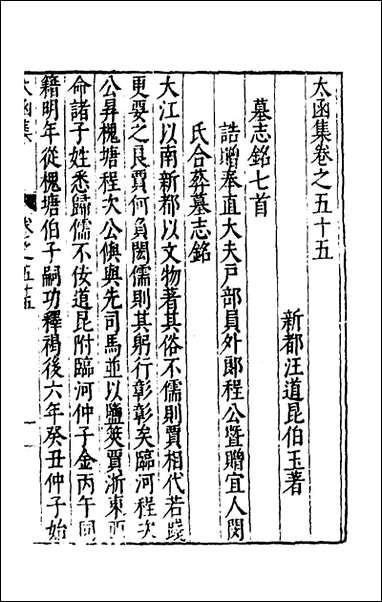 太函集卷之五十五
新都汪道昆伯玉著
墓志銘七首
誥贈奉直大夫戶部員外郎程公暨贈宜人閔
氏合葬墓志銘
大江以南新都以文物著其俗不儒則賈相代若踐
更要之良賈何負閎儒則其躬行彰彰矣臨河程次
公昇槐塘程次公與與先司馬並以鹽筴賈浙東西
命諸子姓悉歸儒不佞道昆附臨河仲子金丙午同
籍明年從槐塘伯子嗣功釋褐後六年癸丑仲子始
太函集
卷之五十五
一